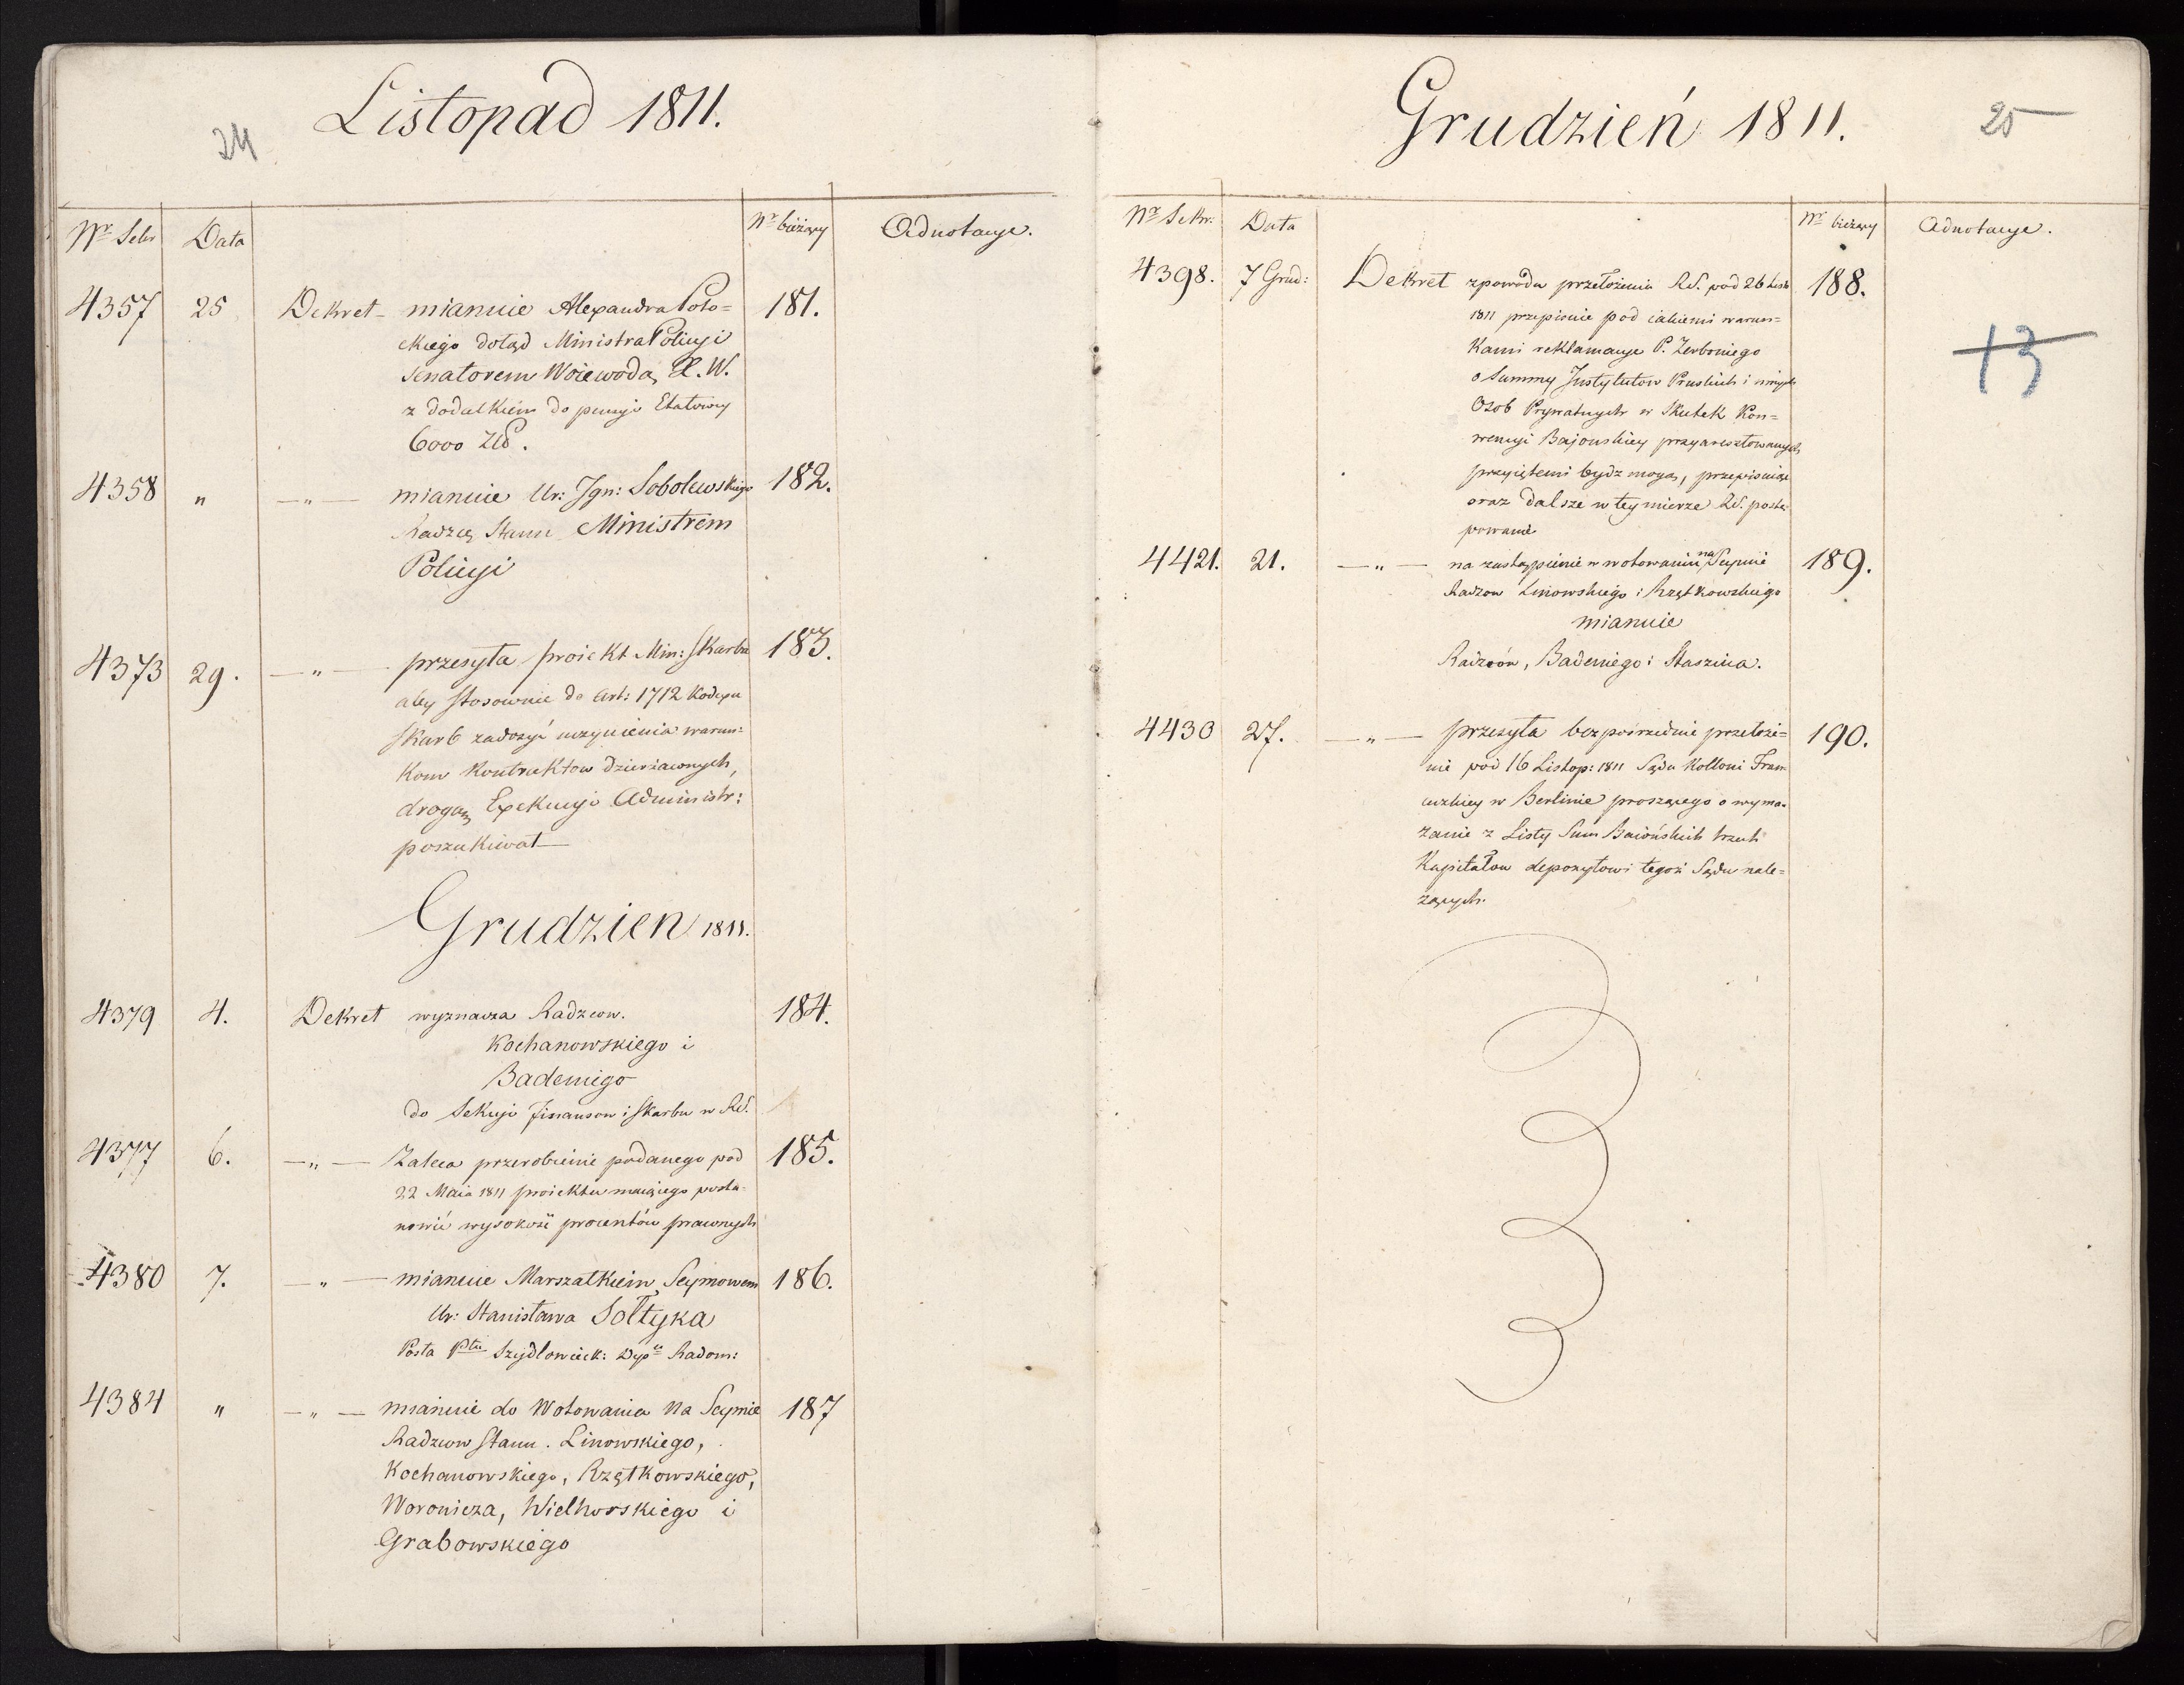 24
Listopad 1811.
Nr Sekr Data Nr bieżący Adnotacye.
4357 25 Dekret mianuie Alexandra Poto=
ckiego dotąd Ministra Policyi
Senatorem Woiewodą X. W.
z dodatkiem do pensyi Etatowey
6000 Zło.
181.
4358 " —"— mianuie Ur: Ign: Sobolewskiego
Radzcę Stanu Ministrem
Policyi
182.
4373 29. —"— przesyła proiekt Min: Skarbu
aby stosownie do Art: 1712 Kodexu
Skarb zadosyć uczynienia warun=
kom Kontraktow dzierżawnych,
drogą Exekucyi Administr:
poszukiwał
183.
Grudzien 1811.
4379 4. Dekret wyznacza Radzcow.
Kochanowskiego i
Badeniego
do Sekcyi Finansow i Skarbu w RS.
184.
4377 6. —"— Zaleca przerobienie podanego pod
22 Maia 1811 proiektu maiącego posta=
nowić wysokość procentów prawnych
185.
4380 7. —"— mianuie Marszałkiem Seymowem
Ur: Stanisława Sołtyka
Posła Ptu Szydłowieck: Dep. Radom:
186.
4384 " —"— mianuie do Wotowania na Seymie
Radzcow Stanu. Linowskiego,
Kochanowskiego, Rzętkowskiego,
Woronicza, Wielhorskiego i
Grabowskiego
187
Grudzień 1811.
25
Nr Sekr. Data Nr bieżący Adnotacye.
4398. 7 Grud: Dekret z powodu przełożenia RS. pod 26 List
1811 przepisuie pod iakiemi warun=
kami reklamacye P. Zerboniego
o Summy Instytutow Pruskich i innych
Osob Prywatnych w Skutek Kon=
wencyi Bajonskiey przyaresztowanych
przyiętemi bydz mogą, przepisuiąc
oraz dalsze w tey mierze RS. postę
powanie
188.
13
4421. 21. —"— na zastąpienie w wotowaniu na Seymie
Radzcow Linowskiego i Rzętkowskiego
mianuie
Radzców, Badeniego i Staszica.
189.
4430 27. —"— przesyła bezpośrednie przełoże=
nie pod 16 Listop: 1811 Sądu Kolloni Fran
cuzkiey w Berlinie proszącego o wyma=
zanie z Listy Sum Baiońskich trzech
Kapitałow depozytowi tegoż Sądu nale=
żących.
190.